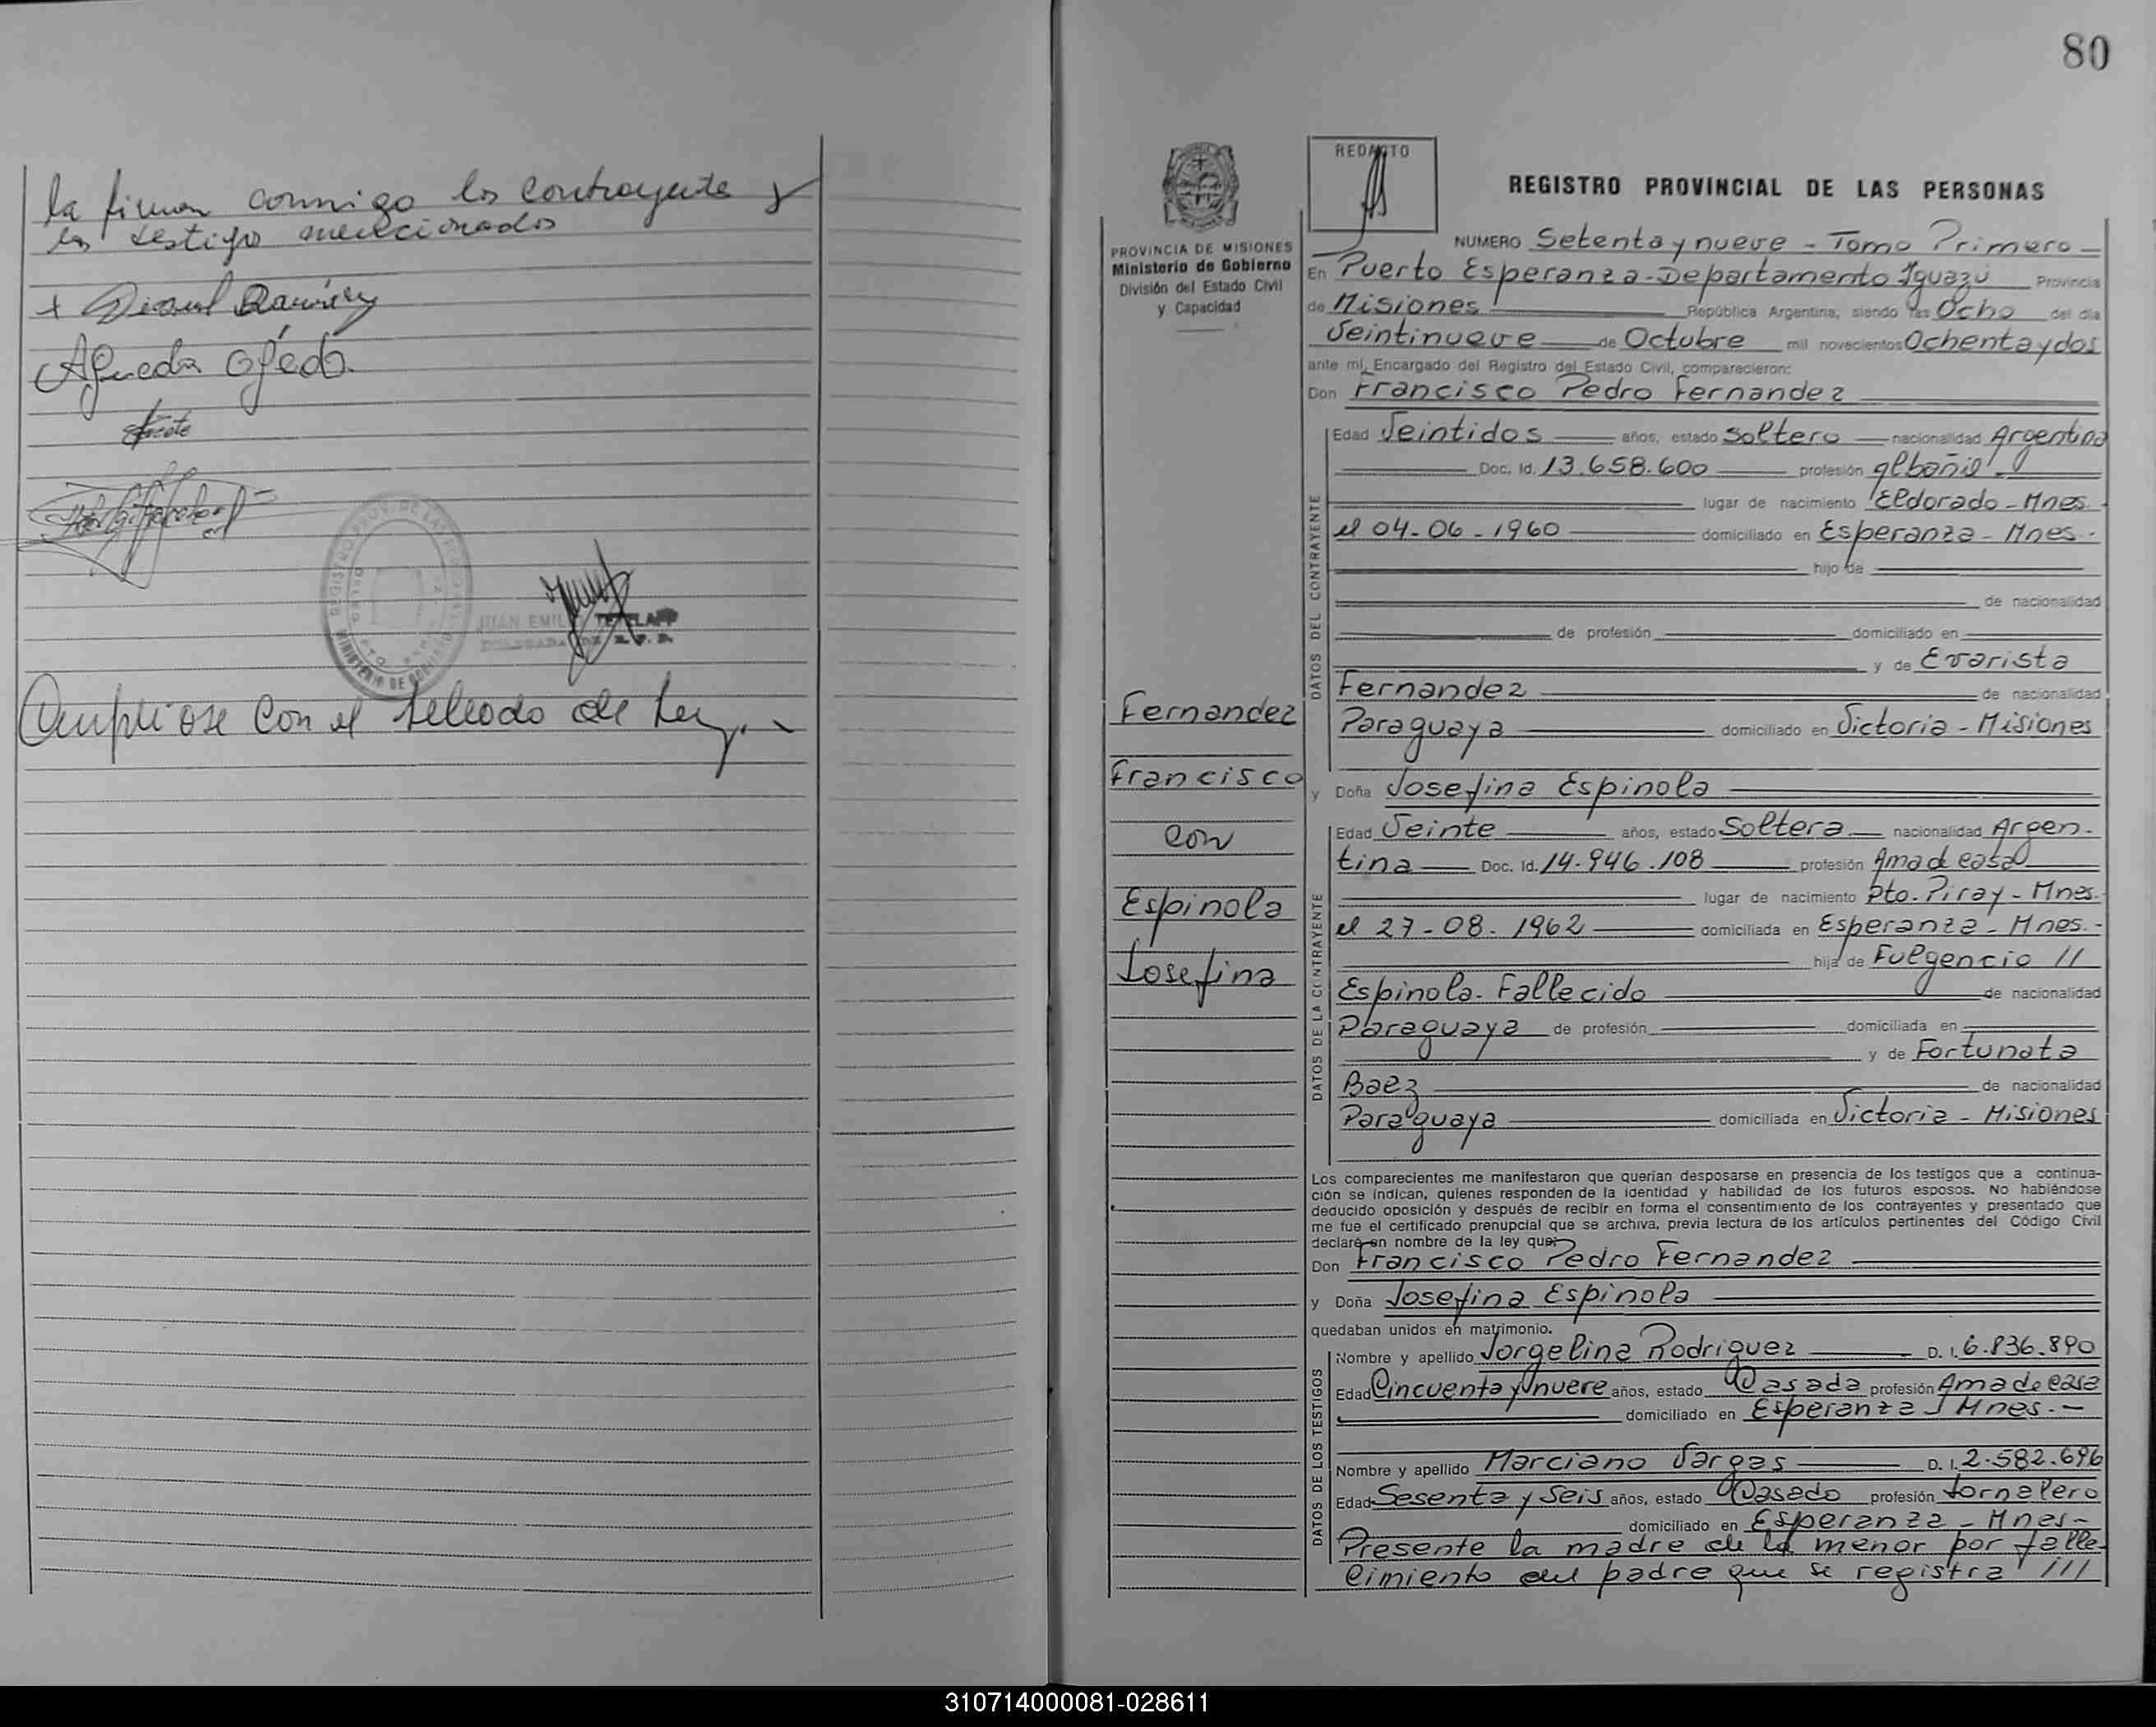 la firman conmigo los contrayente y
los testigo mencionados
Ramírez
Agueda Ojeda
REGISTRO PROV. DE LAS
MINISTERIO DE GOBIERNO
JUAN EMIL
Cumpliose con el sellado de Ley.-
80
PROVINCIA DE MISIONES
Ministerio de Gobierno
División del Estado Civil
y Capacidad
REDACTO
REGISTRO PROVINCIAL DE LAS PERSONAS
NUMERO Setenta y nueve - Tomo Primero -
En Puerto Esperanza - Departamento Iguazú Provincia
de Misiones República Argentina, siendo las Ocho del día
Veintinueve de Octubre mil novecientos Ochenta y dos
ante mí, Encargado del Registro del Estado Civil, comparecieron:
Don Francisco Pedro Fernandez
DATOS DEL CONTRAYENTE
Edad Veintidos años, estado Soltero nacionalidad Argentina
Doc. Id. 13.658.600 profesión albañil -
lugar de nacimiento Eldorado - Mnes.
el 04-06-1960 domiciliado en Esperanza - Mnes.-
hijo de
de nacionalidad
de profesión domiciliado en
y de Evarista
Fernandez de nacionalidad
Paraguaya domiciliado en Victoria - Misiones
Fernandez
Francisco
con
Espinola
Josefina
y Doña Josefina Espinola
DATOS DE LA CONTRAYENTE
Edad Veinte años, estado Soltera nacionalidad Argen-
tina Doc. Id. 14.946.108 profesión Ama de casa
lugar de nacimiento Pto. Piray - Mnes.-
el 27-08-1962 domiciliada en Esperanza - Mnes.-
hija de Fulgencio //
Espinola. Fallecido de nacionalidad
Paraguaya de profesión domiciliada en
y de Fortunata
Baez de nacionalidad
Paraguaya domiciliada en Victoria - Misiones
Los comparecientes me manifestaron que querían desposarse en presencia de los testigos que a continua-
ción se indican, quienes responden de la identidad y habilidad de los futuros esposos. No habiéndose
deducido oposición y después de recibir en forma el consentimiento de los contrayentes y presentado que
me fue el certificado prenupcial que se archiva, previa lectura de los artículos pertinentes del Código Civil
declaré en nombre de la ley que:
Don Francisco Pedro Fernandez
y Doña Josefina Espinola
quedaban unidos en matrimonio.
DATOS DE LOS TESTIGOS
Nombre y apellido Jorgelina Rodriguez D. I. 6.836.890
Edad Cincuenta y nueve años, estado Casada profesión Ama de casa
domiciliado en Esperanza - Mnes.-
Nombre y apellido Marciano Vargas D. I. 2.582.696
Edad Sesenta y Seis años, estado Casado profesión Jornalero
domiciliado en Esperanza - Mnes-
Presente la madre de la menor por falle-
cimiento del padre que se registra ///
310714000081-028611